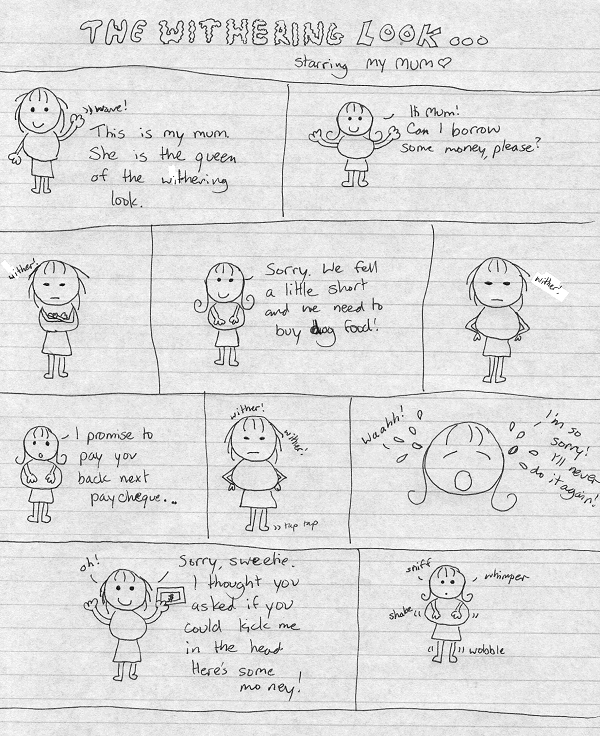 THE WITHERING LOOK...
starring my mum ♡
wave!
This is my mum.
She is the queen
of the withering
look.
Hi Mum!
Can I borrow
some money, please?
wither!
Sorry. We fell
a little short
and we need to
buy dog food!
wither!
I promise to
pay you
back next
paycheque...
wither!
wither!
tap tap
waahh!
I'm so
sorry!
I'll never
do it again!
oh!
Sorry, sweetie.
I thought you
asked if you
could kick me
in the head
Here's some
money!
$
sniff
whimper
shake
wobble